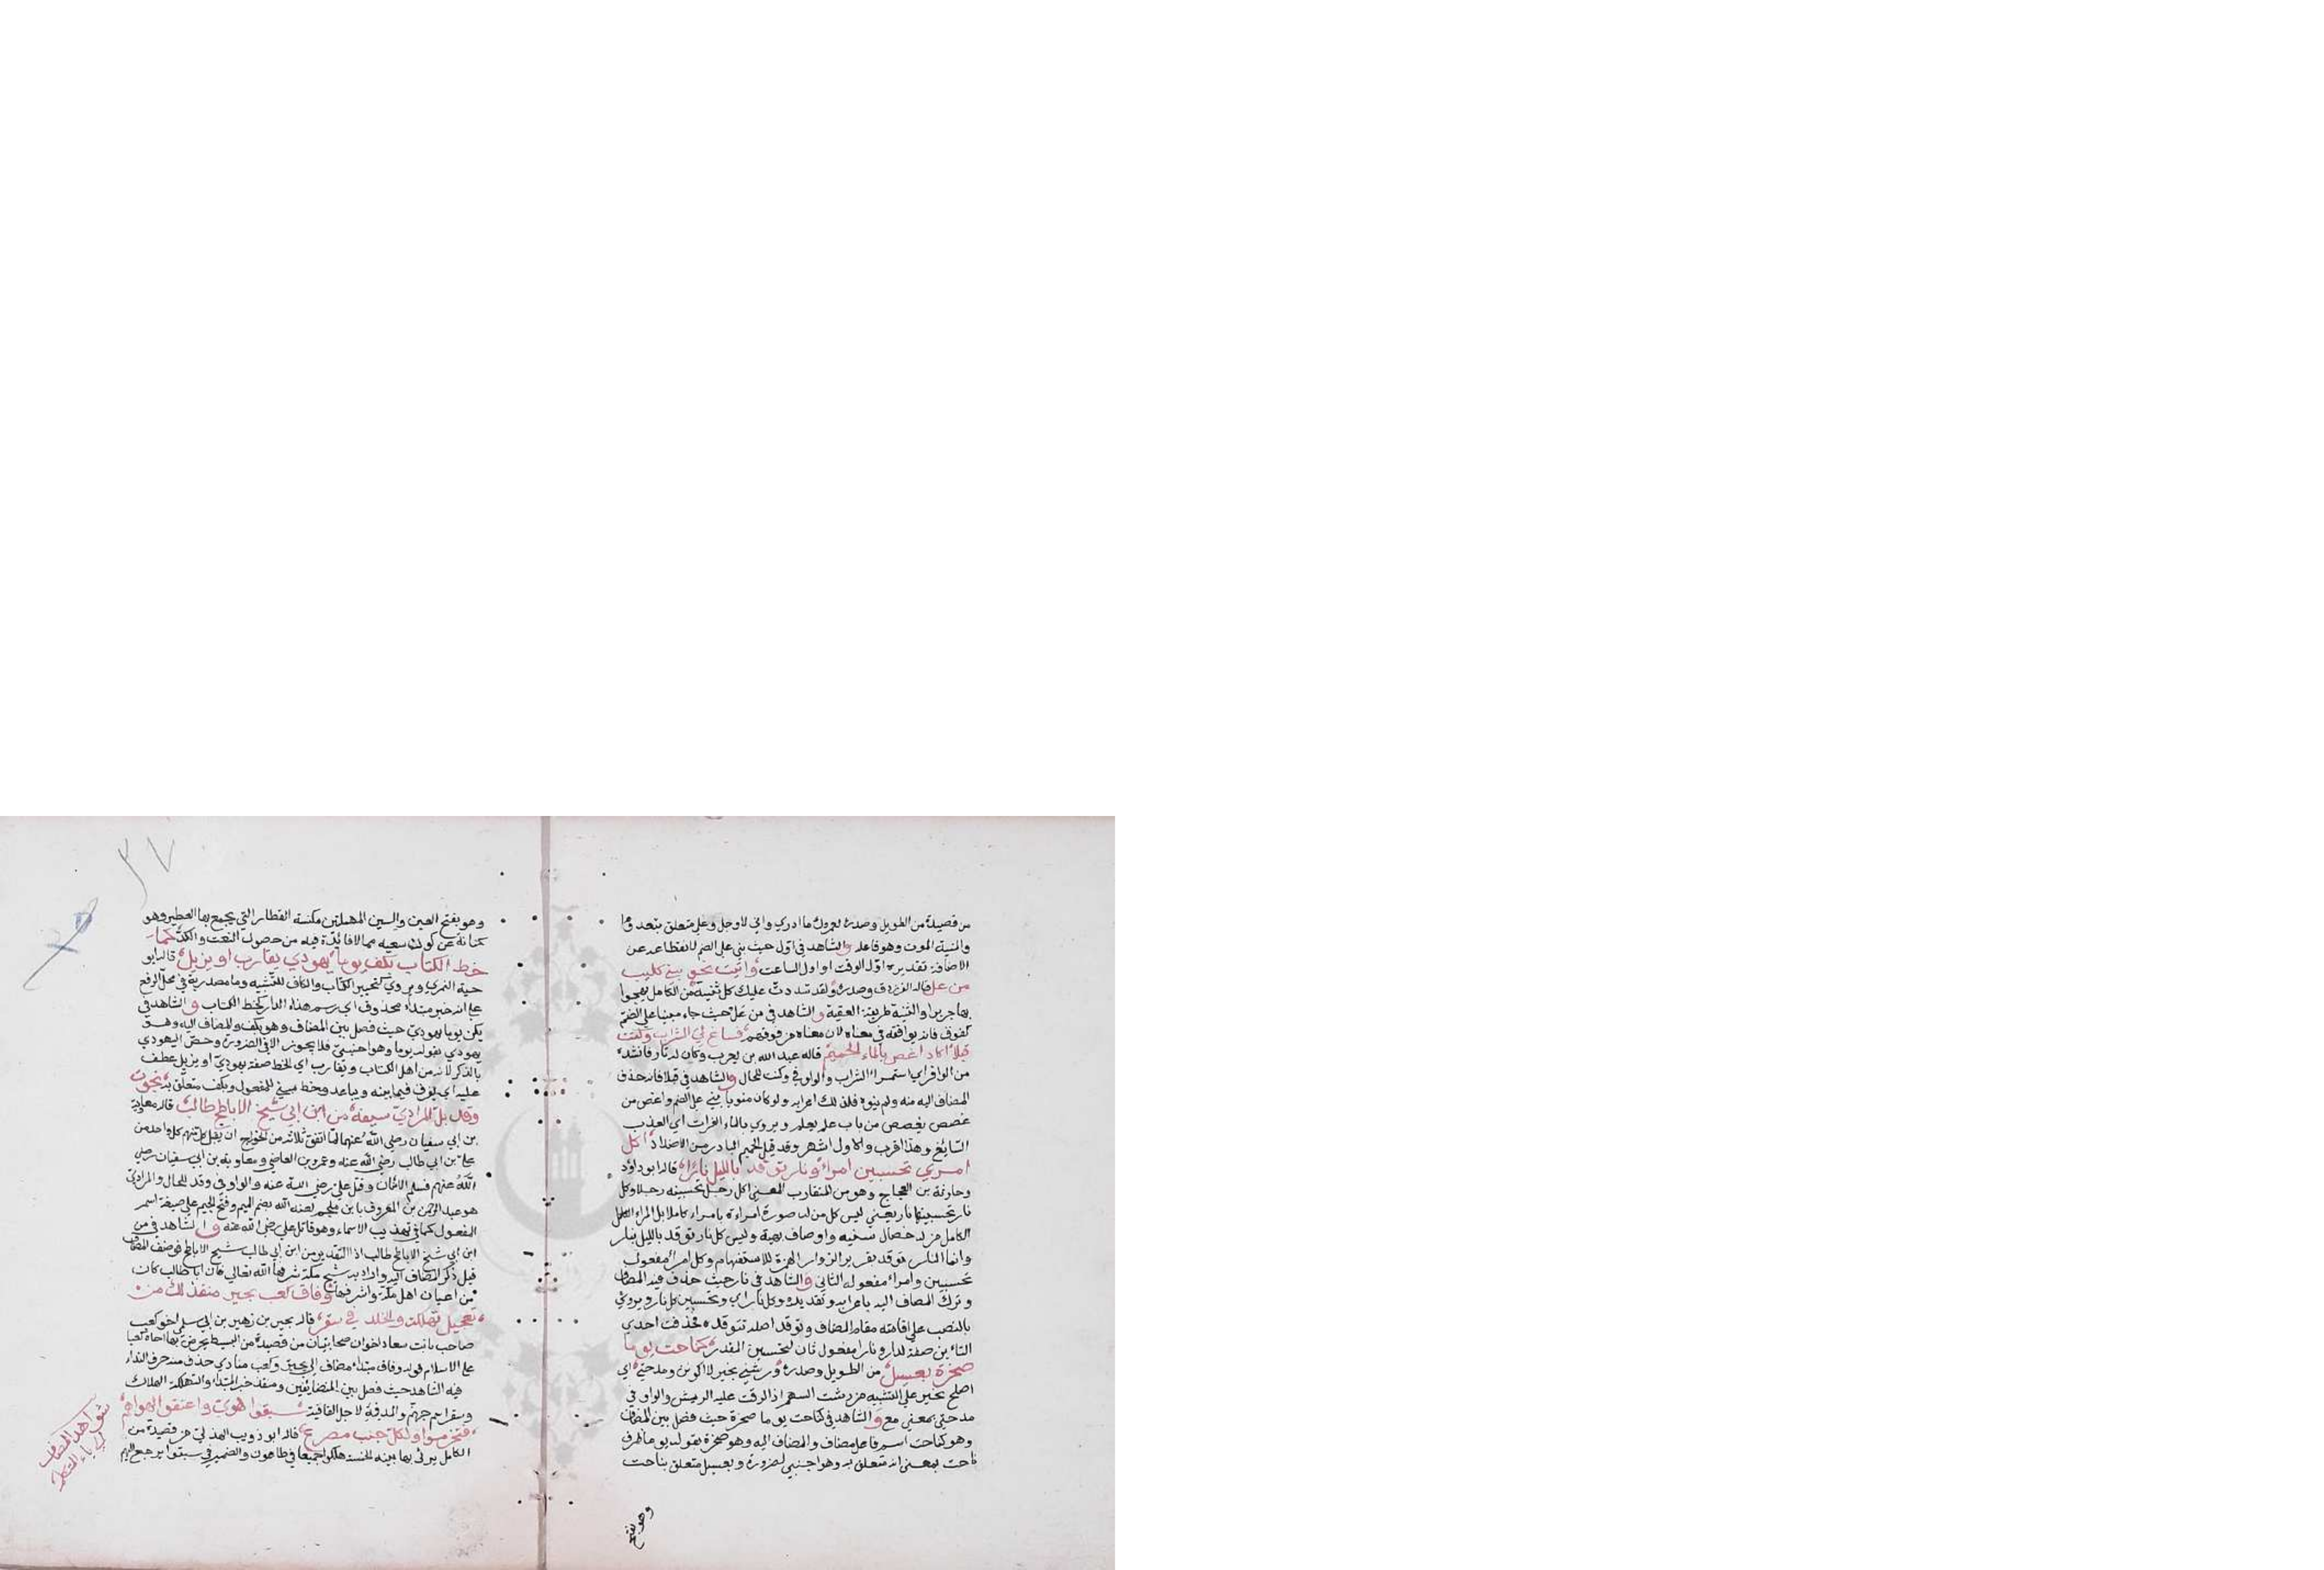 من قصيدة من الطويل وصدره لعمرك ما ادري واني لاوجل وعلى متعلق بتعد و
والمنية الموت وهو فاعله والشاهد في اول حيث بني على الضم لانقطاعه عن
الاضافة تقديره اول الوقت او اول الساعت واتيت نحو بني كليب
من عل قاله الفرزدق وصدره ولقد سددت عليك كل ثنية من الكامل يهجوا
بها جريرا والثنية طريقة العقبة والشاهد في من عل حيث جاء مبنيا على الضم
كفوق فانه يوافقه في معناه لان معناه من فوقهم فساغ لي الشراب وكنت
قبلا اكاد اغص بالماء الحميم قاله عبد الله بن يعرب وكان له ثار فانشده
من الوافر اي استمرا الشراب والواو في وكنت للحال والشاهد في قبلا فانه حذف
المضاف اليه منه ولم ينوه فلذلك اعرابه ولو كان منويا بني على الضم واغص من
غصص يغصص من باب علم يعلم ويروي بالماء الفرات اي العذب
السايغ وهذا اقرب والاول اشهر وقد قيل الحميم البادر من الاضداد اكل
امري تحسبين امراء ونار توقد بالليل نارا قاله ابو داود
وحارثة بن الحجاج وهو من المتقارب المعني اكل رجل تحسبينه رجلا وكل
نار تحسبينها نار يعني ليس كل من له صورة امراءة بامراء كاملا بل المراء الكامل
الكامل من له خصال سنيه واوصاف بهية وليس كل نار توقد بالليل بنار
وانما النار توقد بقر ير الزوار الهمزة للاستفهام وكل امرا مفعول
تحسبين وامراء مفعوله الثاني والشاهد في نار حيث حذف فيه المضاف
وترك المضاف اليه باعرابه وتقديره وكل نار اي وتحسبين كل نار ويروي
بالنصب على اقامته مقام المضاف وتوقد اصله تتوقد فحذفت احدي
التائين صفة لنار ونارا مفعول ثان لتحسبين المقدر كناحت يوما
صخرة بعسيل من الطويل وصدره ورشني بخير لا اكونن ومدحتي اي
اصلح بخير على التشبيه من رشت السهم اذا الزقت عليه الريش والواو في
مدحتي بمعني مع والشاهد في كناحت يوما صخرة حيث فصل بين المضاف
وهو كناحت اسم فاعل مضاف والمضاف اليه وهو صخرة بقوله يوما ظرف
ناحت بمعني انه متعلق به وهو اجنبي لضرورة وبعسيل متعلق بناحت
وهو بفتح
وهو بفتح العين والسين المهملتين مكنسة القطار التي يجمع بها العطير وهو
كناية عن كون سعيه مما لا فائدة فيه من حصول التعت والكد كما
خط الكتاب بكف يوما يهودي يقارب او يزيل قاله ابو
حية النمري ويروي كتحبير الكتاب والكاف للتشبيه وما مصدرية في محل الرفع
على انه خبر مبتداء محذوف اي رسم هذه الدار كخط الكتاب والشاهد في
بكف يوما يهودي حيث فصل بين المضاف وهو بكف والمضاف اليه وهو
يهودي بقوله يوما وهو اجنبي فلا يجوز الا في الضرورة وخص اليهودي
بالذكر لانه من اهل الكتاب ويقارب اي الخط صفة يهودي او يزيل عطف
عليه اي يفرق فيما بينه ويباعد وخط مبني للمفعول وبكف متعلق به نجوت
وقد بل المرادي سيفه من ابن ابي شيخ الاباطح طالب قاله معاوية
بن ابي سفيان رضي الله عنهما لما اتفق ثلاثة من الخوارج ان يقتل كل منهم كل واحد من
علي بن ابي طالب رضي الله عنه وعمرو بن العاصي ومعاوية بن ابي سفيان رضي
الله عنهم فسلم الاثنان وقتل علي رضي الله عنه والواو في وقد للحال والمرادي
هو عبد الرحمن بن المعروف بابن ملجم لعنه الله بضم الميم وفتح الجيم على صيغة اسم
المفعول كما في تهذيب الاسماء وهو قاتل علي رضي الله عنه والشاهد في من
ابن ابي شيخ الاباطح طالب اذ التقدير من ابن ابي طالب شيخ الاباطح فوصف المضاف
قبل ذكر المضاف اليه واراد به شيخ مكة شرفها الله تعالي فان ابا طالب كان
من اعيان اهل مكة واشرفها وفاق كعب بجير منقذ لك من
تعجيل تهلكة والخلد في سقر قاله بجير بن زهير بن ابي سلمي اخو كعب
صاحب بانت سعاد اخوان صحابيان من قصيدة من البسيط يحرض بها اخاه كعبا
على الاسلام قوله وفاق مبتداء مضاف الي بجير وكعب منادي حذف منه حرف النداء
فيه الشاهد حيث فصل بين المتضايفين ومنقذ خبر المبتداء والتهلكة الهلاك
وسقر اسم جهنم والدفية لاجل القافية سبقوا هوي واعنقوا لهواهم
فتخرموا ولكل جنب مصرع قاله ابو ذويب الهذلي من قصيدة من
الكامل يرثي بها بنيه الخمسة هلكوا جميعا في طاعون والضمير في سبقوا يرجع اليهم
شواهد المضاف
الي ياء المتكلم
٣٧